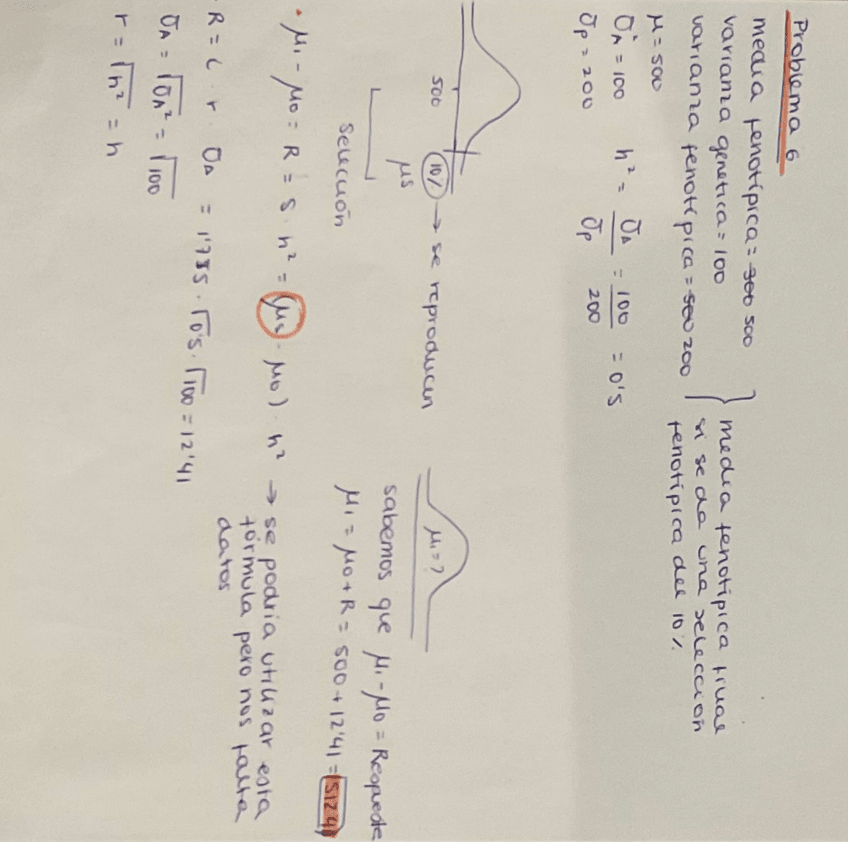 Problema 6
media fenotípica = 300 500
varianza genetica = 100
varianza fenotípica = 500 200
media fenotípica final
si se da una selección
fenotípica del 10%
μ = 500
σ²A = 100 h² = σA / σP = 100 / 200 = 0'5
σP = 200
500 10% → se reproducen
μs
selección
μ1 = ?
sabemos que μ1 - μ0 = Respuesta
μ1 = μ0 + R = 500 + 12'41 = 512'41
• μ1 - μ0 = R = S · h² = (μs - μ0) · h² → se podría utilizar esta
fórmula pero nos falta
datos
· R = i · r · σA = 1'755 · √0'5 · √100 = 12'41
σA = √σA² = √100
r = √h² = h